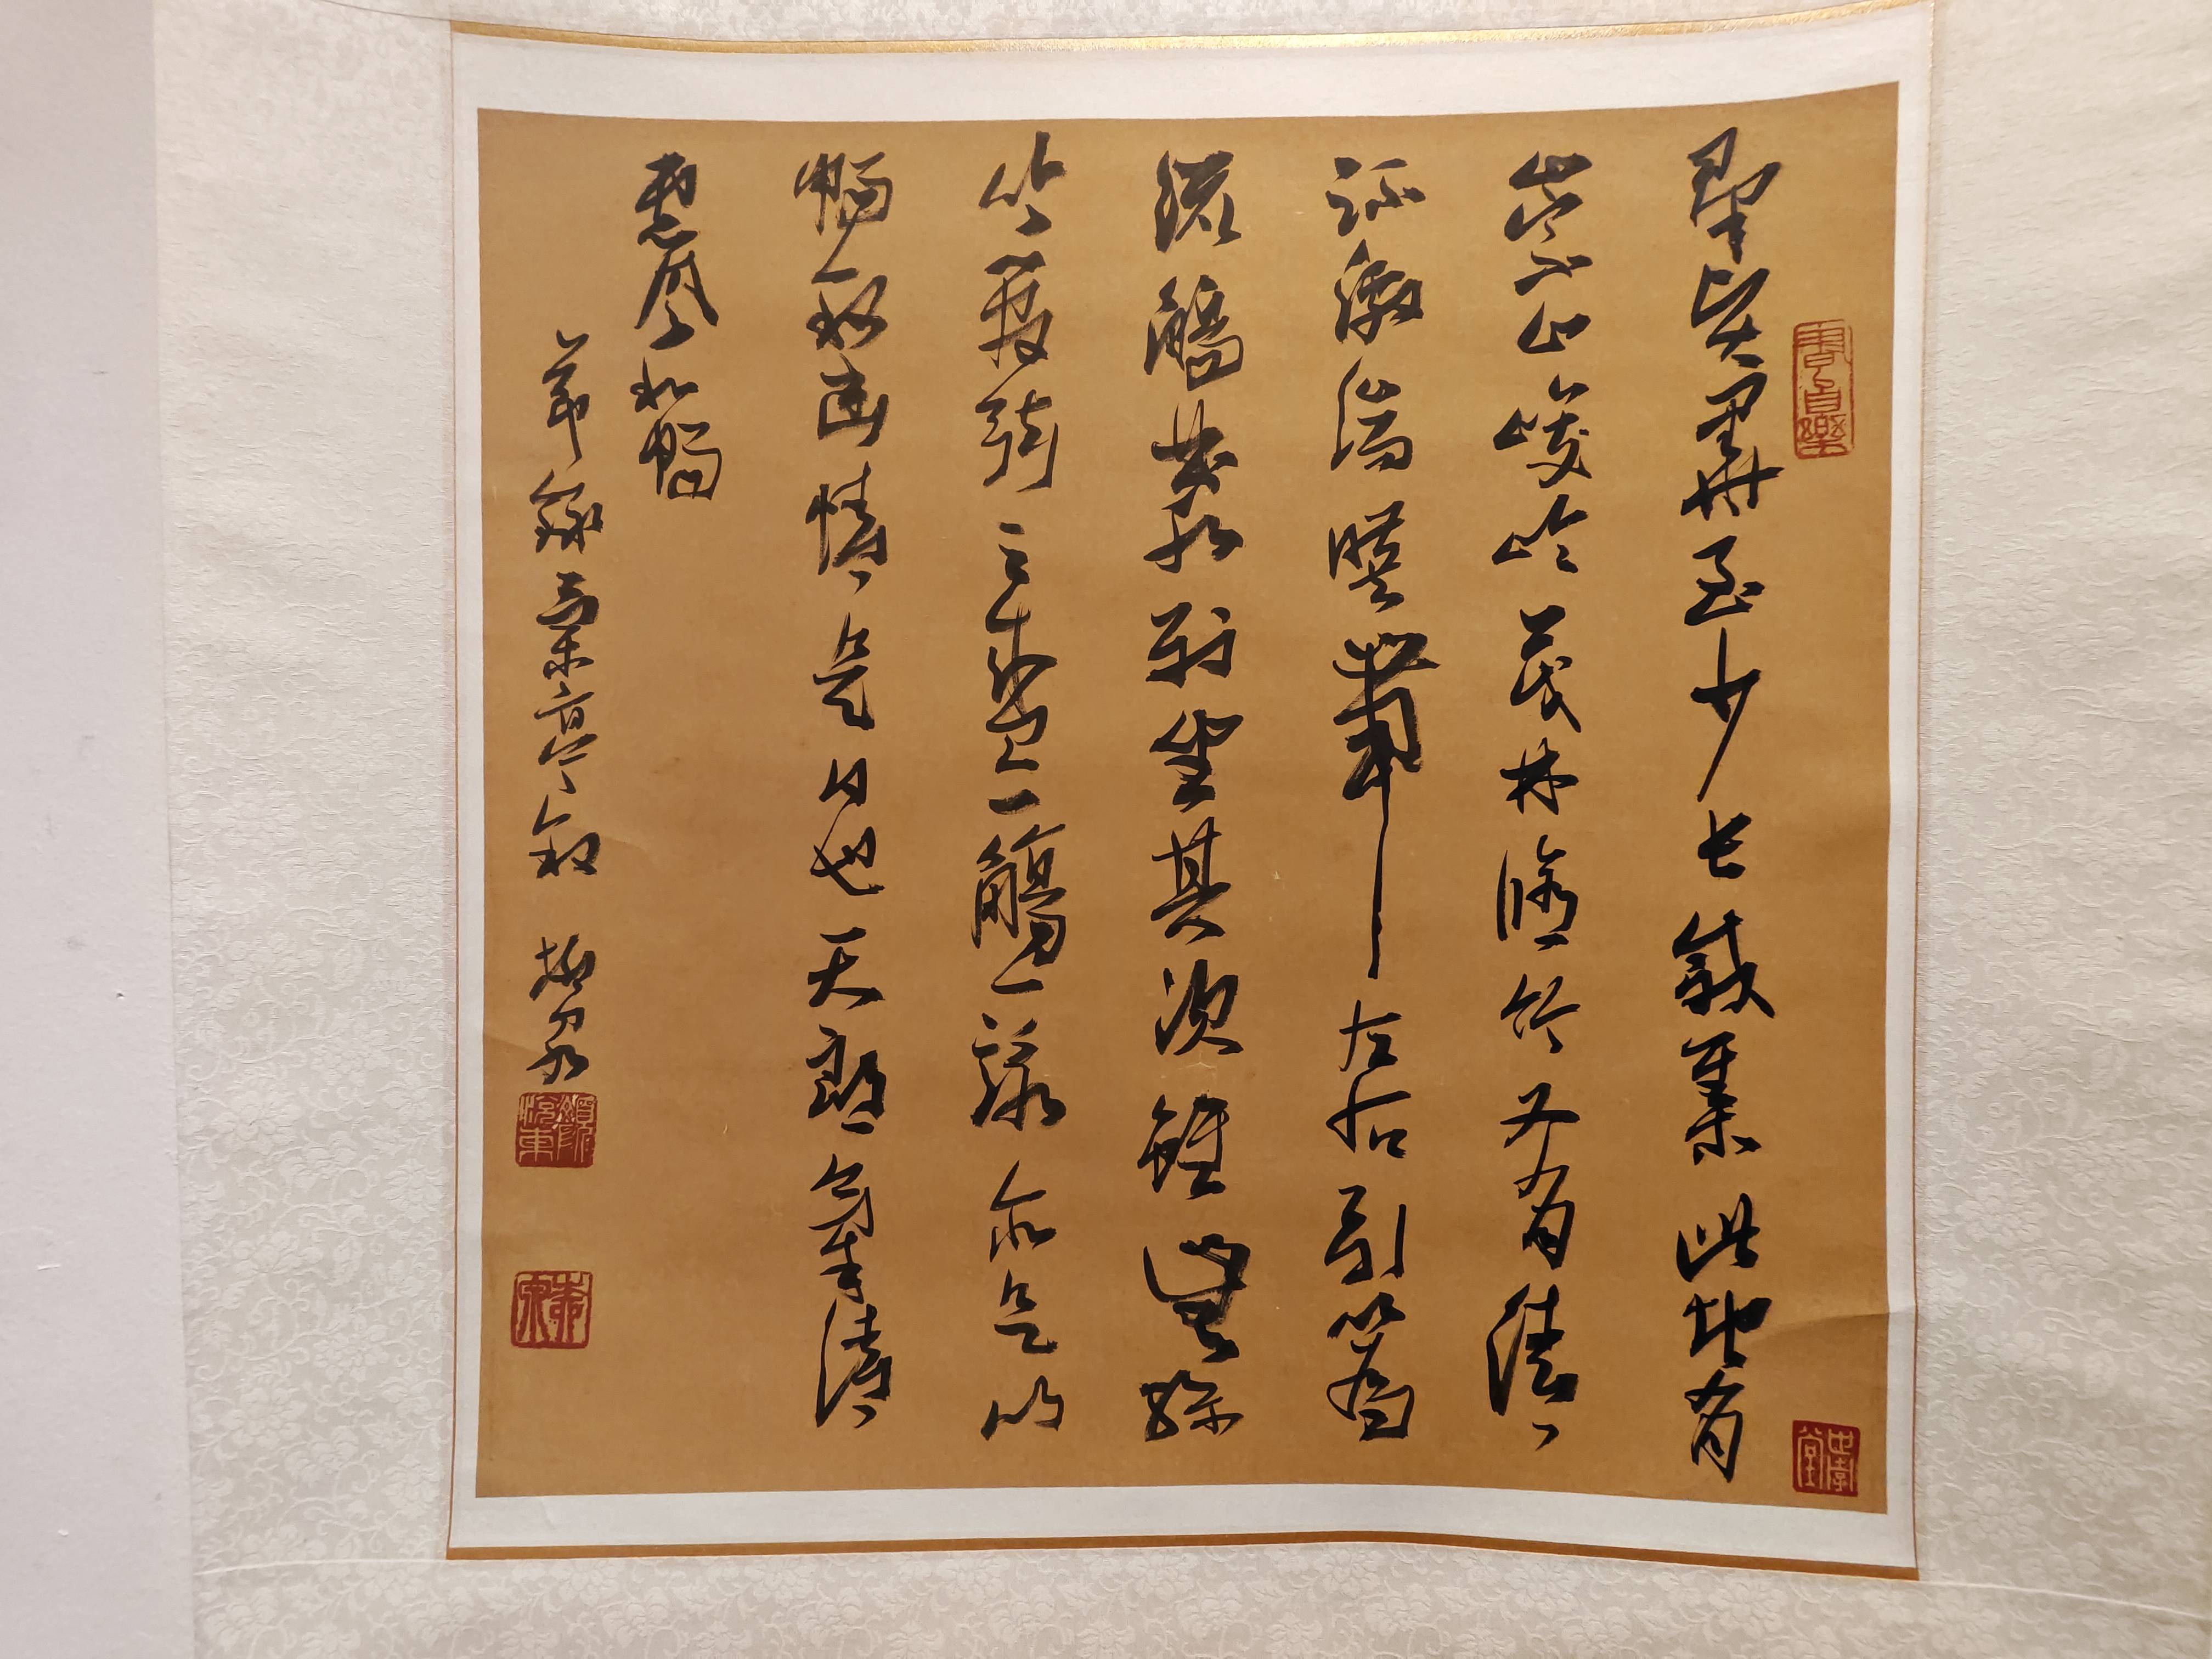 羣賢畢至少長咸集此地有
崇山峻岭茂林脩竹又有清
流激湍暎帶左右引以為
流觴曲水列坐其次雖無絲
竹管弦之盛一觴一詠亦足以
暢敘幽情是日也天朗氣清
惠風和暢
節錄蘭亭叙